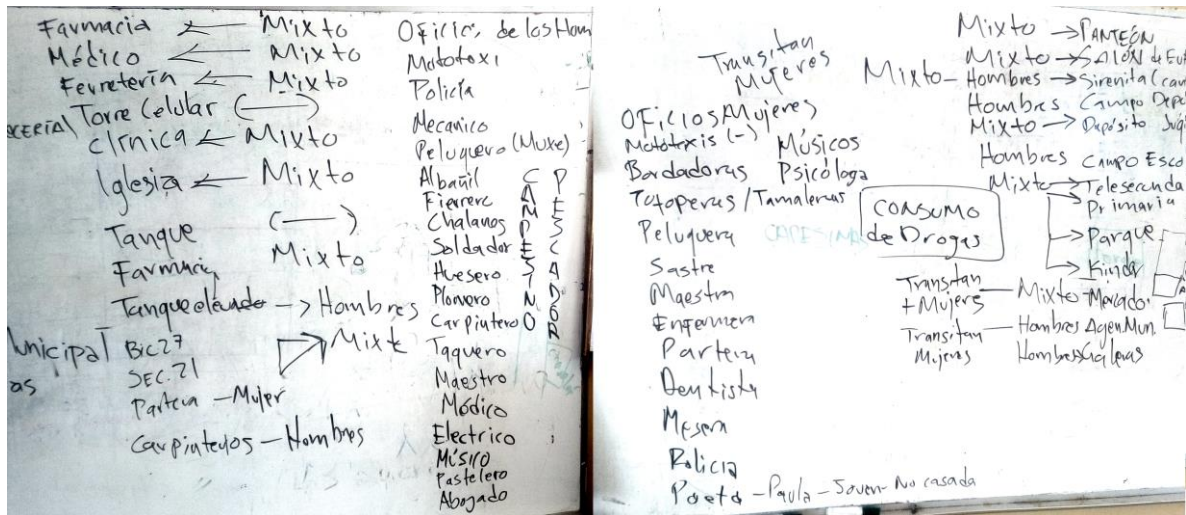 Farmacia ← Mixto
Médico ← Mixto
Ferretería ← Mixto
Torre Celular ( )
clínica ← Mixto
Iglesia ← Mixto
Tanque ( )
Farmacia Mixto
Tanque elevado → Hombres
unicipal
as
Bic 27
SEC. 21
Mixt
Partera - Mujer
Carpinteros - Hombres
Oficios de los Hom
Mototaxi
Policía
Mecanico
Peluquero (Muxe)
Albañil
Fierrero
Chalanos
Soldador
Huesero
Plomero
Carpintero
CAMPESINO
PESCADOR
Taquero
Maestro
Médico
Electrico
Músico
Pastelero
Abogado
Transitan
Mujeres
OFicios Mujeres
Mototaxis (-)
Bordadoras
Totoperas / Tamaleras
Peluquera
Sastre
Maestra
Enfermera
Partera
Dentista
Mesera
Policia
Poeta - Paula - Joven - No casada
Músicos
Psicóloga
CONSUMO
de Drogas
Mixto → PANTEÓN
Mixto → SALÓN de
Mixto - Hombres → Sirenita
Hombres Campo Depo
Mixto → Depósito
Hombres Campo Esco
Mixto → Telesecunda
Primaria
→ Parque
→ Kinder
Transitan
+ Mujeres — Mixto - Mercado
Transitan — Hombres Agen Mun.
Mujeres Hombres Galeras